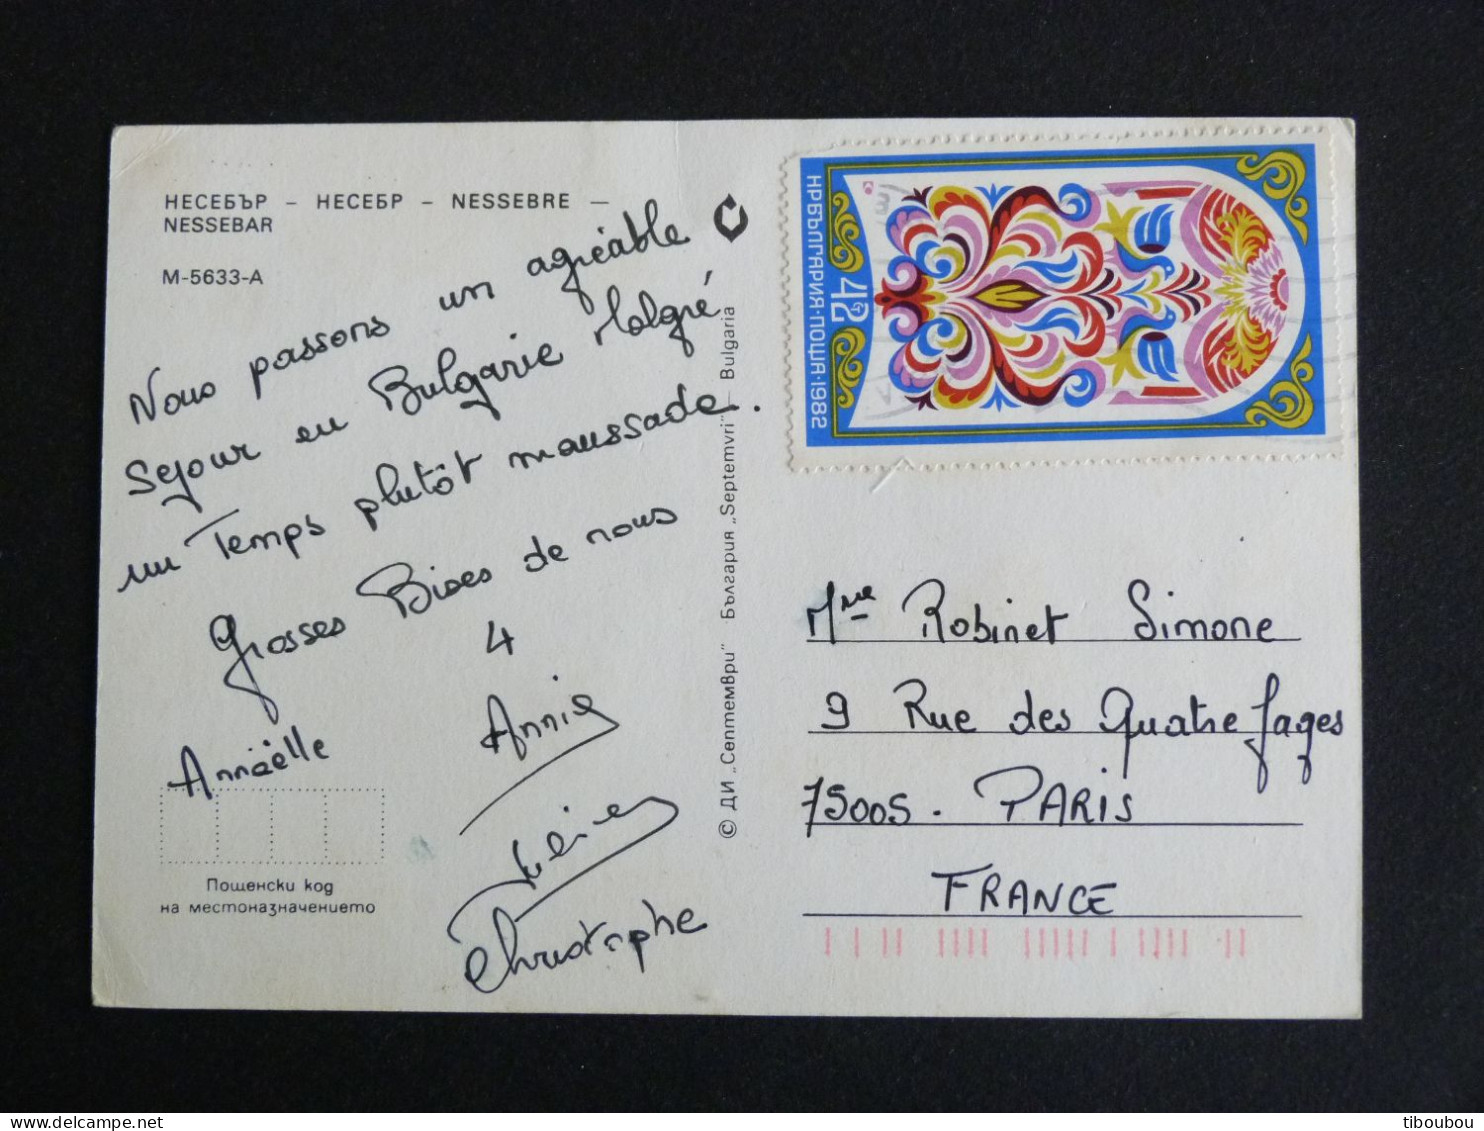 НЕСЕБЪР – НЕСЕБР – NESSEBRE –
NESSEBAR
М-5633-А
Nous passons un agréable
Sejour en Bulgarie Malgré
un Temps plutôt maussade.
Grosses Bises de nous
4
Annaëlle
Annie
Christophe
Пощенски код
на местоназначението
© ДИ „Септември" България „Septemvri" – Bulgaria
НР БЪЛГАРИЯ·ПОЩА·1982
42
Mme Robinet Simone
9 Rue des Quatre Fages
75005. PARIS
FRANCE
tiboubou / delcampe.net